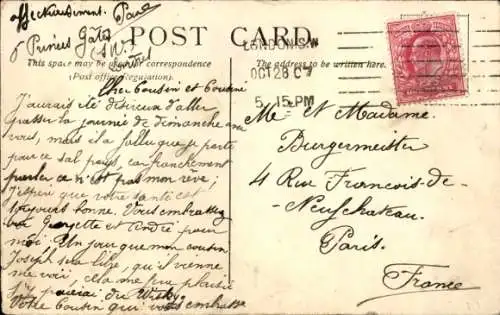 affectueusement. Paul
5 Princes Gate
(S.W.)
Londres
POST CARD.
This space may be used for correspondence
(Post office Regulation).
The address to be written here.
LONDON S.W
OCT 28 07
5. 15 PM
Cher Cousin et Cousine
J'aurais été désireux d'aller
passer la journée de dimanche avec
vous, mais il a fallu que je parte
pour ce sal pays, car franchement
parler ce n'est pas mon rêve;
J'espère que votre santé est
toujours bonne. Vous embrassez
Georgette et André pour
moi. Un jour que mon cousin
Joseph sera libre, qu'il vienne
me voir, cela me fera plaisir
paierai du Wisky
Votre Cousin qui vous embrasse
Mr et Madame
Burgermeister
4 Rue François-de-
-Neufchateau.
Paris.
France